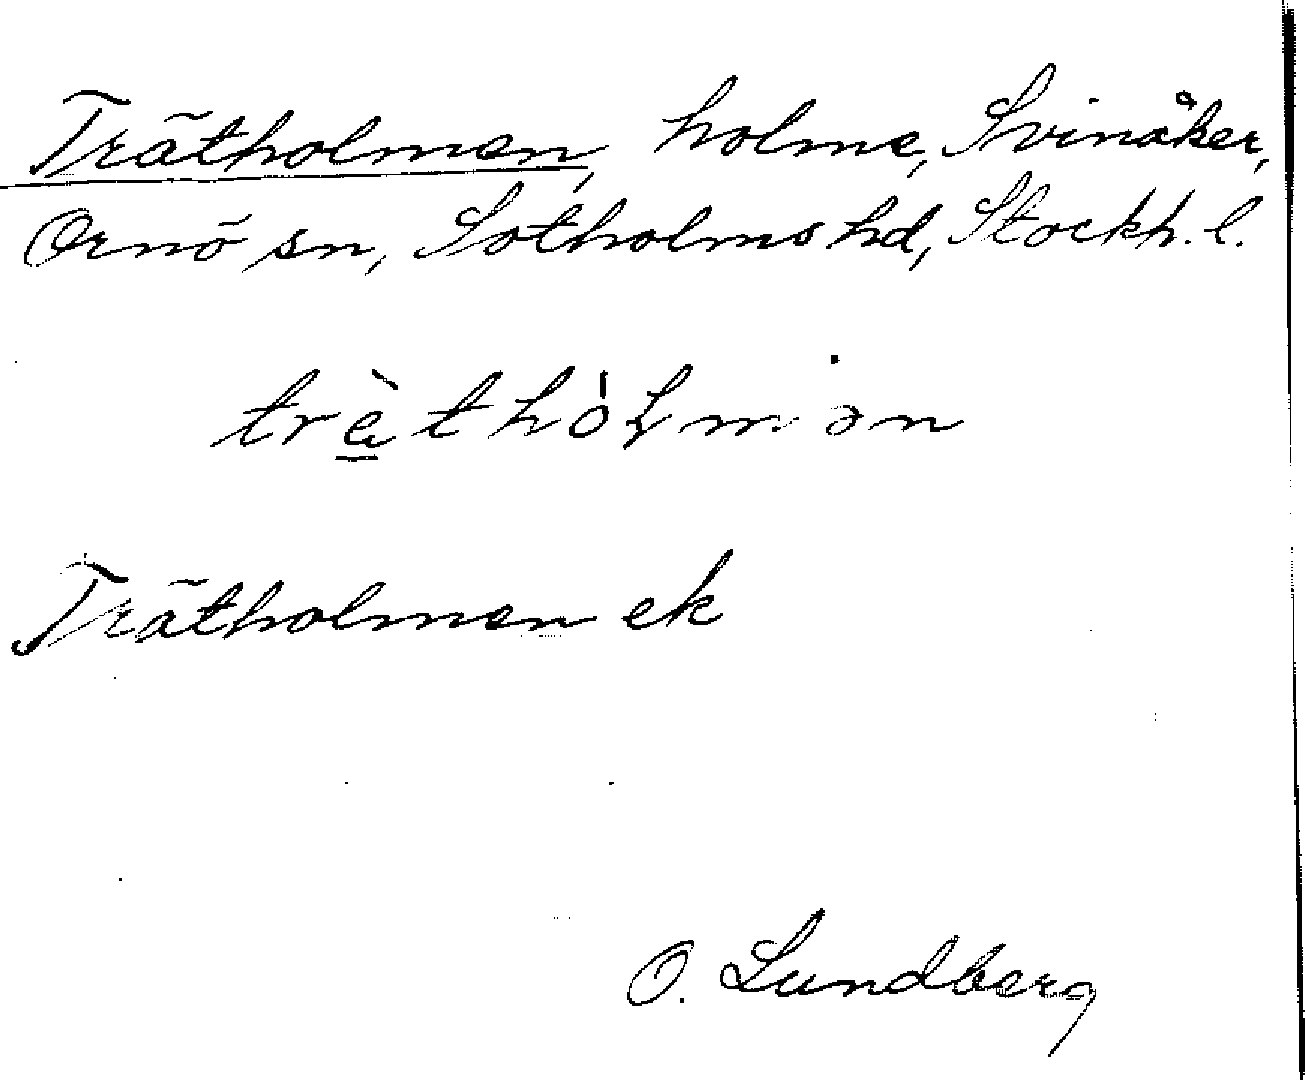 Trätholmen, holme, Svinåker,
Ornö sn, Sotholms hd, Stockh. l.
trä̀thólmən
Trätholmen ek
O. Lundberg